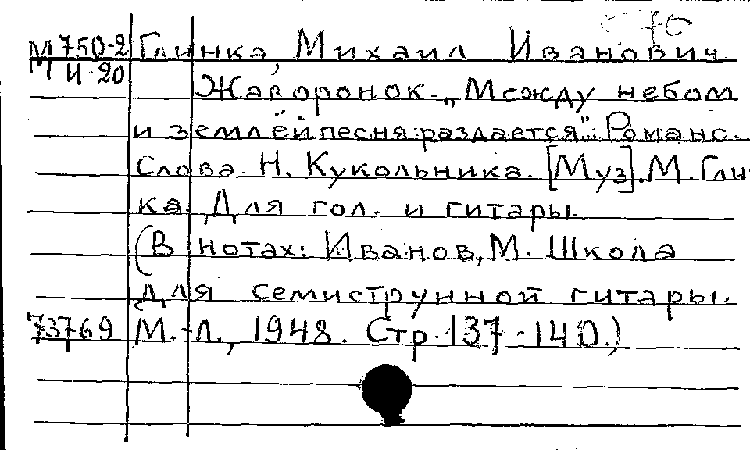 М 750-2 Глинка, Михаил Иванович
М И-20 Жаворонок. „Между небом
и землёй песня раздается". Романс.
Слова Н. Кукольника. [Муз]. М. Глин-
ка. Для гол. и гитары.
(В нотах: Иванов, М. Школа
для семиструнной гитары.
73769 М.-Л., 1948. Стр. 137-140.)